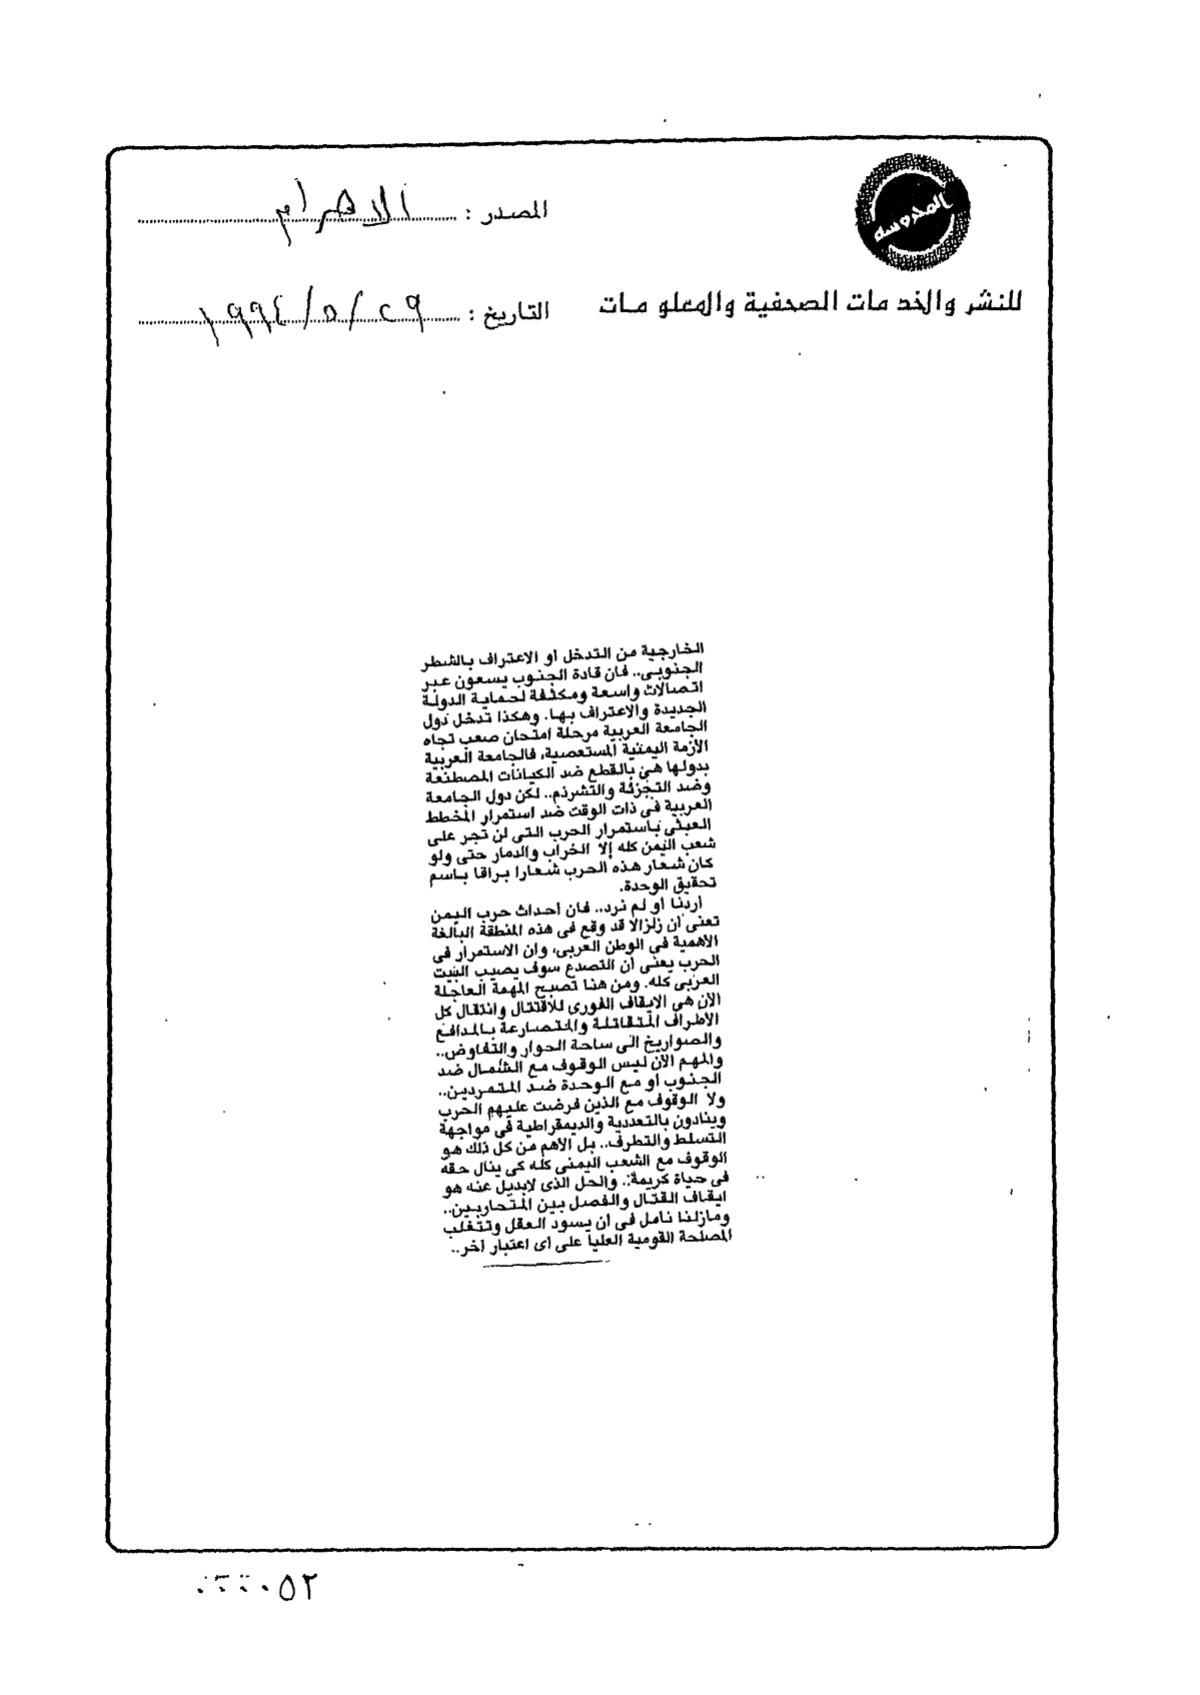 المحروسه
للنشر والخدمات الصحفية والمعلومات
المصدر : الاهرام
التاريخ : ٢٩ / ٥ / ١٩٩٤
الخارجية من التدخل او الاعتراف بالشطر
الجنوبى.. فان قادة الجنوب يسعون عبر
اتصالات واسعة ومكثفة لحماية الدولة
الجديدة والاعتراف بها. وهكذا تدخل دول
الجامعة العربية مرحلة امتحان صعب تجاه
الأزمة اليمنية المستعصية، فالجامعة العربية
بدولها هى بالقطع ضد الكيانات المصطنعة
وضد التجزئة والتشرذم.. لكن دول الجامعة
العربية فى ذات الوقت ضد استمرار المخطط
العبثى باستمرار الحرب التى لن تجر على
شعب اليمن كله إلا الخراب والدمار حتى ولو
كان شعار هذه الحرب شعارا براقا باسم
تحقيق الوحدة.
اردنا او لم نرد.. فان احداث حرب اليمن
تعنى أن زلزالا قد وقع فى هذه المنطقة البالغة
الاهمية فى الوطن العربى، وان الاستمرار فى
الحرب يعنى أن التصدع سوف يصيب البيت
العربى كله. ومن هنا تصبح المهمة العاجلة
الآن هى الإيقاف الفورى للاقتتال وانتقال كل
الاطراف المتقاتلة والمتصارعة بالمدافع
والصواريخ الى ساحة الحوار والتفاوض..
والمهم الآن ليس الوقوف مع الشمال ضد
الجنوب أو مع الوحدة ضد المتمردين..
ولا الوقوف مع الذين فرضت عليهم الحرب
وينادون بالتعددية والديمقراطية فى مواجهة
التسلط والتطرف.. بل الأهم من كل ذلك هو
الوقوف مع الشعب اليمنى كله كى ينال حقه
فى حياة كريمة.. والحل الذى لابديل عنه هو
ايقاف القتال والفصل بين المتحاربين..
ومازلنا نامل فى ان يسود العقل وتتغلب
المصلحة القومية العليا على أى اعتبار آخر..
٠٥٢